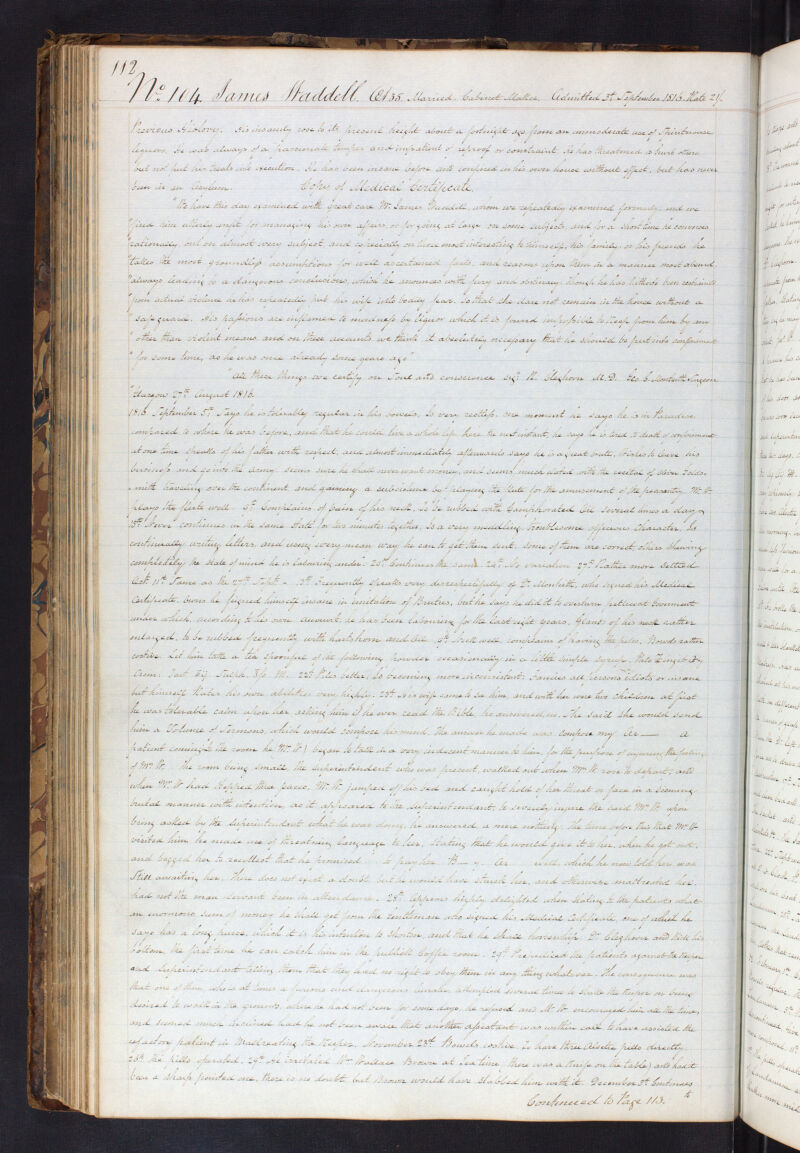 112
No. 104 James Waddell. Æt 35. Married. Cabinet Maker. Admitted 3d September 1816. Rate 21/.
Previous History. His insanity rose to its present height about a fortnight ago from an immoderate use of Spirituous
liquors. He was always of a passionate temper and impatient of reproof or constraint. He has threatened to hurt others
but not put his treats into execution. He has been insane before and confined in his own house without effect, but has never
been in an Asylum. Copy of Medical Certificate.
"We have this day examined with great care Mr. James Waddell, whom we repeatedly examined formerly, and we
"find him utterly unfit for managing his own affairs, or for going at large. On some subjects and for a short time he converses
"rationally, but on almost every subject, and especially on those most interesting to himself, his family, or his friends he
"takes the most groundless assumptions for well ascertained facts, and reasons upon them in a manner most absurd,
"always leading to a dangerous conclusions, which he announces with fury and obstinacy though he has hitherto been restrained
"from actual violence he has repeatedly put his wife into bodily fear. So that she dare not remain in the house without a
"safeguard. His passions are inflamed to madness by liquor which it is found impossible to keep from him by any
"other than violent means and on these accounts we think it absolutely necessary that he should be put into confinement
"for some time, as he was once already some years ago"
"All these things we certify on Soul and conscience sigd. R. Cleghorn M.D. Geo. C. Monteath Surgeon
"Glasgow 27th August 1816.
1816 September 5th Says he is tolerably regular in his bowels. Is very restless. One moment he says he is in Paradise
compared to where he was before, and that he could live a whole life here the next instant he says he is tired to death of confinement
at one time speaks of his father with respect, and almost immediately afterwards says he is a great brute. Wishes to leave his
business and go into the Army. Seems sure he shall never want money, and seems much elated with the recital of Oliver Golds-
mith traveling over the continent and gaining a subsistence by playing the flute for the amusement of the peasantry. Mr. W.
plays the flute well. 9th Complains of pain of his neck, to be rubbed with Camphorated Oil several times a day.
15th Never continues in the same state for ten minutes together. Is a very meddling, troublesome officious character. Is
continually writing letters, and using every mean way he can to get them sent. Some of them are correct, others shewing
completely the state of mind he is labouring under. 20th Continues the same. 24th No variation 27th Rather more settled
Oct. 11th Same as the 27th Sept. 13th Frequently speaks very disrespectfully of Dr. Monteath, who signed his Medical
Certificate. Owns he feigned himself insane in imitation of Brutus, but he says he did it to overturn petticoat Government
under which, according to his own account, he has been labouring for the last eight years. Glands of his neck rather
enlarged, to be rubbed frequently with hartshorn and oil. 19th Neck well, complains of having the piles. Bowels rather
costive. Let him take a tea spoonful of the following powder occasionally in a little simple syrup. Pulv. Zingib.
Crem. Tart. Sulph. M. 22d Piles better. Is becoming more inconsistent. Fancies all persons idiots or insane
but himself. Rates his own abilities very highly. 23d His wife came to see him, and with her were two children at first
he was tolerable calm upon her asking him if he ever read the Bible, he answered no. She said she would send
him a Volume of Sermons, which would compose his mind. The answer he made was compose my Ar— A
patient coming into the room he (Mr. W.) began to talk in a very indecent manner to him, for the purpose of injuring the feelings
of Mrs. W. The room being small, the superintendent who was present, walked out when Mrs. W. rose to depart, and
when Mrs. W. had stepped three paces, Mr. W. jumped off his bed and caught hold of her throat or face in a seeming
brutal manner with intention, as it appeared to the superintendant, to severely injure the said Mrs. W. Upon
being asked by the superintendant what he was doing, he answered, a mere nothing. The time before this that Mrs. W.
visited him he made use of threatening language to her, stating that he would give it to her, when he got out
and begged her to recollect that he promised to pay her B—y Ar— well, which he now told her was
still awaiting her. There does not exist a doubt but he would have struck her, and otherwise maltreated her
had not the man servant been in attendance. 28th Appears highly delighted when stating to the patients what
an enormous sum of money he shall get from the Gentlemen who signed his Medical Certificate, one of whom he
says has a long purse, which it is his intention to shorten, and that he shall horsewhip Dr. Cleghorn and kick his
bottom, the first time he can catch him in the publick Coffee room. 29th Prejudiced the patients against the Keeper
and Superintendant telling them that they had no right to obey them in any thing whatever. The consequence was
that one of them, who is at times a furious and dangerous lunatic, attempted several times to strike the Keeper on being
desired to walk in the grounds, where he had not been for some days, he refused and Mr. W. encouraged him all the time,
and seemed much inclined had he not been aware that another assistant was within call to have assisted the
refractory patient in maltreating the Keeper. November 25th Bowels costive. To have three Aperient pills directly.
26th The pills operated. 29th He irritated Mr. Wallace Brown at Tea time, there was a knife on the table, and had it
been a sharp pointed one, there is no doubt but Brown would have stabbed him with it. December 3d Continues
Continued to Page 113.